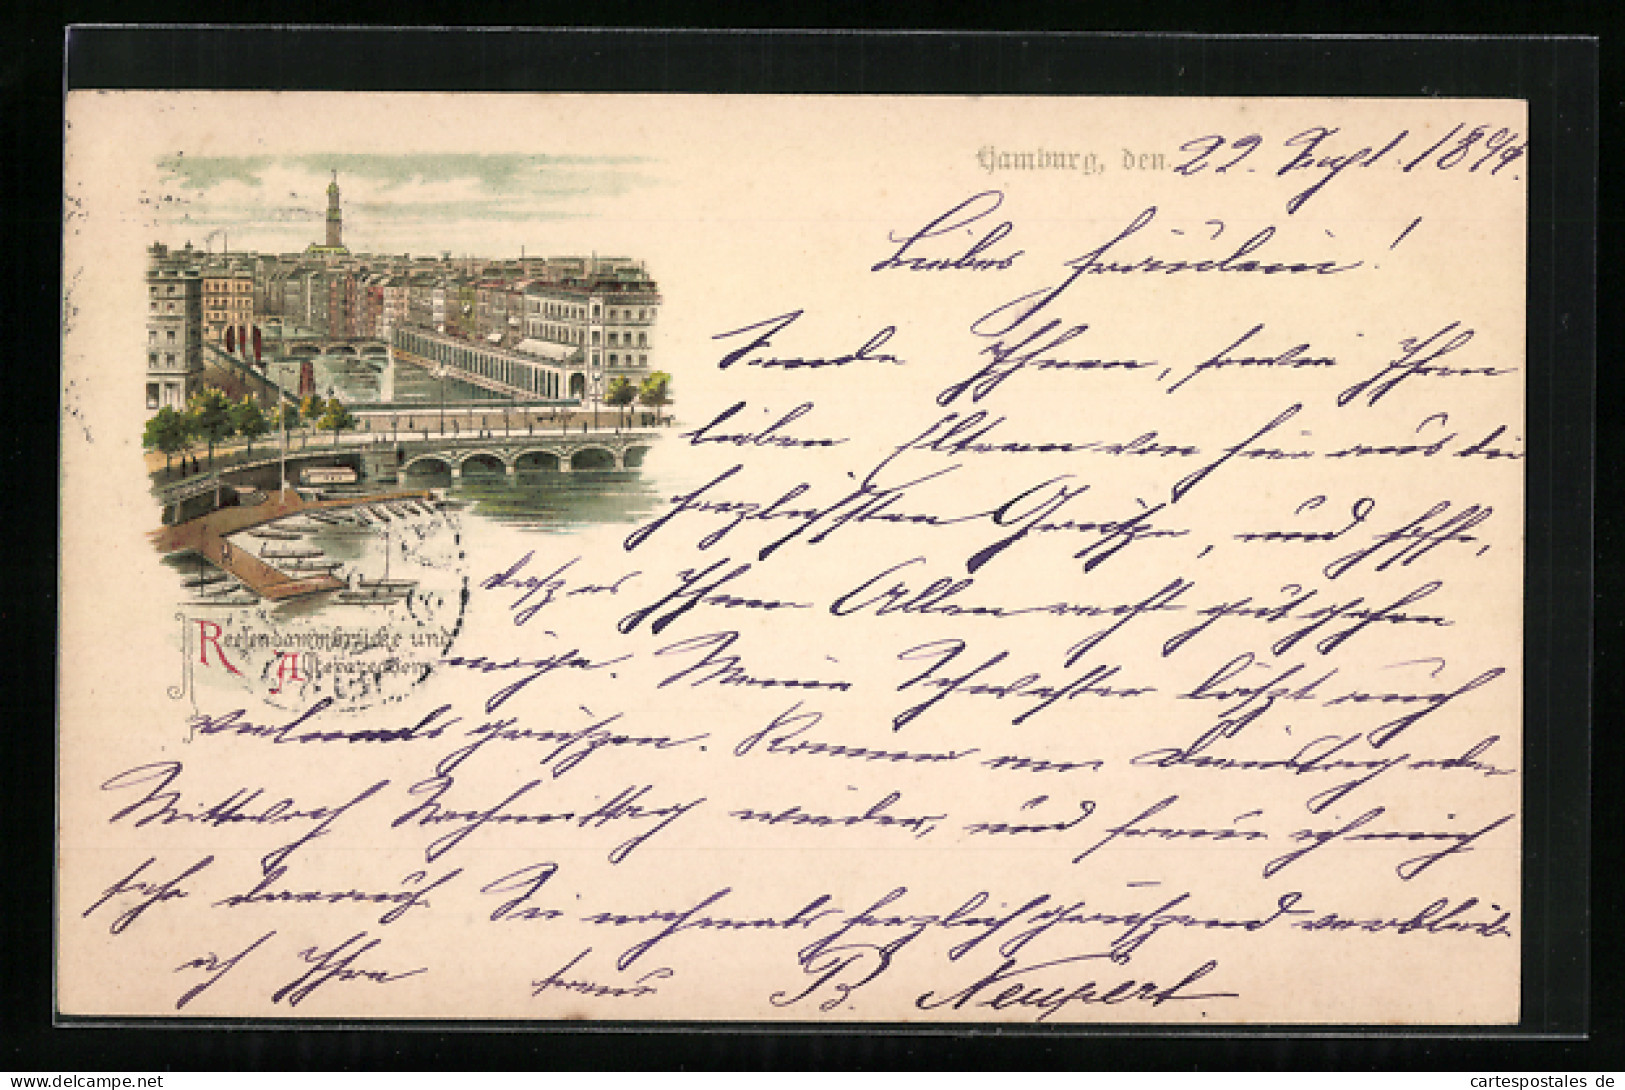 Hamburg, den 22. Sept. 1894.
Liebes Fräulein!
Sende Ihnen, sowie Ihren
lieben Eltern von hier aus die
herzlichsten Grüße, und hoffe,
daß es Ihnen Allen recht gut gehen
möge. Meine Schwester läßt auch
vielmals grüßen. Komme am Dienstag oder
Mittwoch Nachmittag wieder, und freue ich mich
sehr darauf. Sie nochmals herzlich grüßend verbleibe
ich Ihre treue B. Neupert
Reesendammbrücke und
Alsterarcaden.
cartespostales de